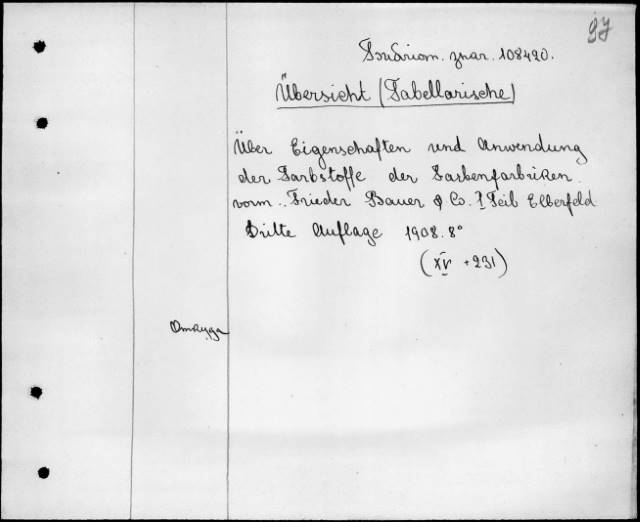 97
108420.
Übersicht (Tabellarische)
Über Eigenschaften und Anwendung
der Farbstoffe der Farbenfabriken
vorm. Frieder Bauer & Co. I Teil Elberfeld
Dritte Auflage 1908. 8°
(XV + 231)
Откуда